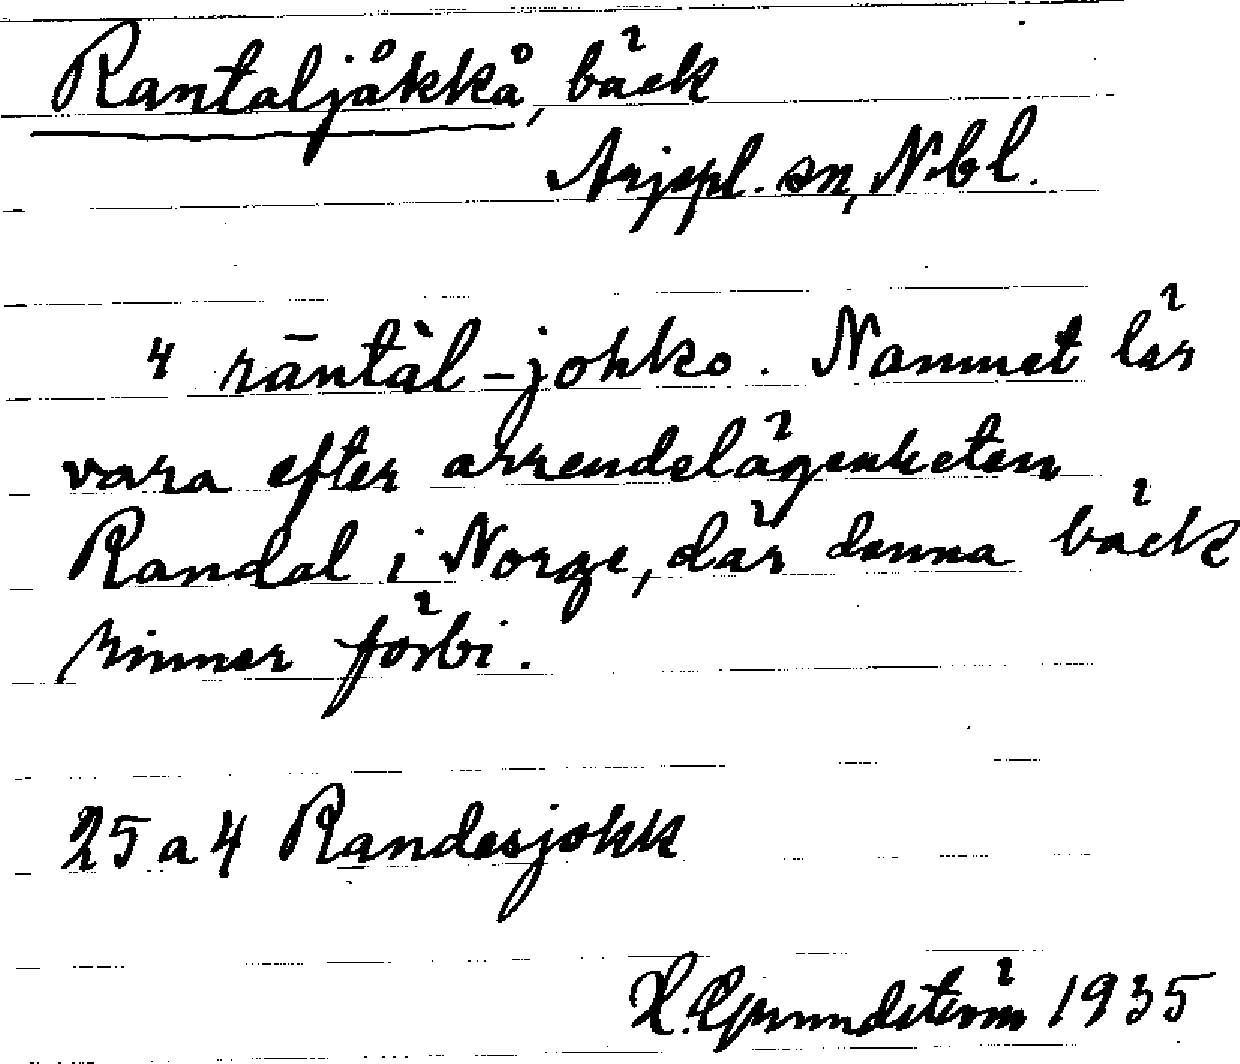 Rantaljåkkå, bäck
Arjepl. sn, Nbl.
4 rāntàl-johko. Namnet lär
vara efter arrendelägenheten
Randal i Norge, där denna bäck
rinner förbi.
25 a 4 Randesjokk
H. Grundström 1935